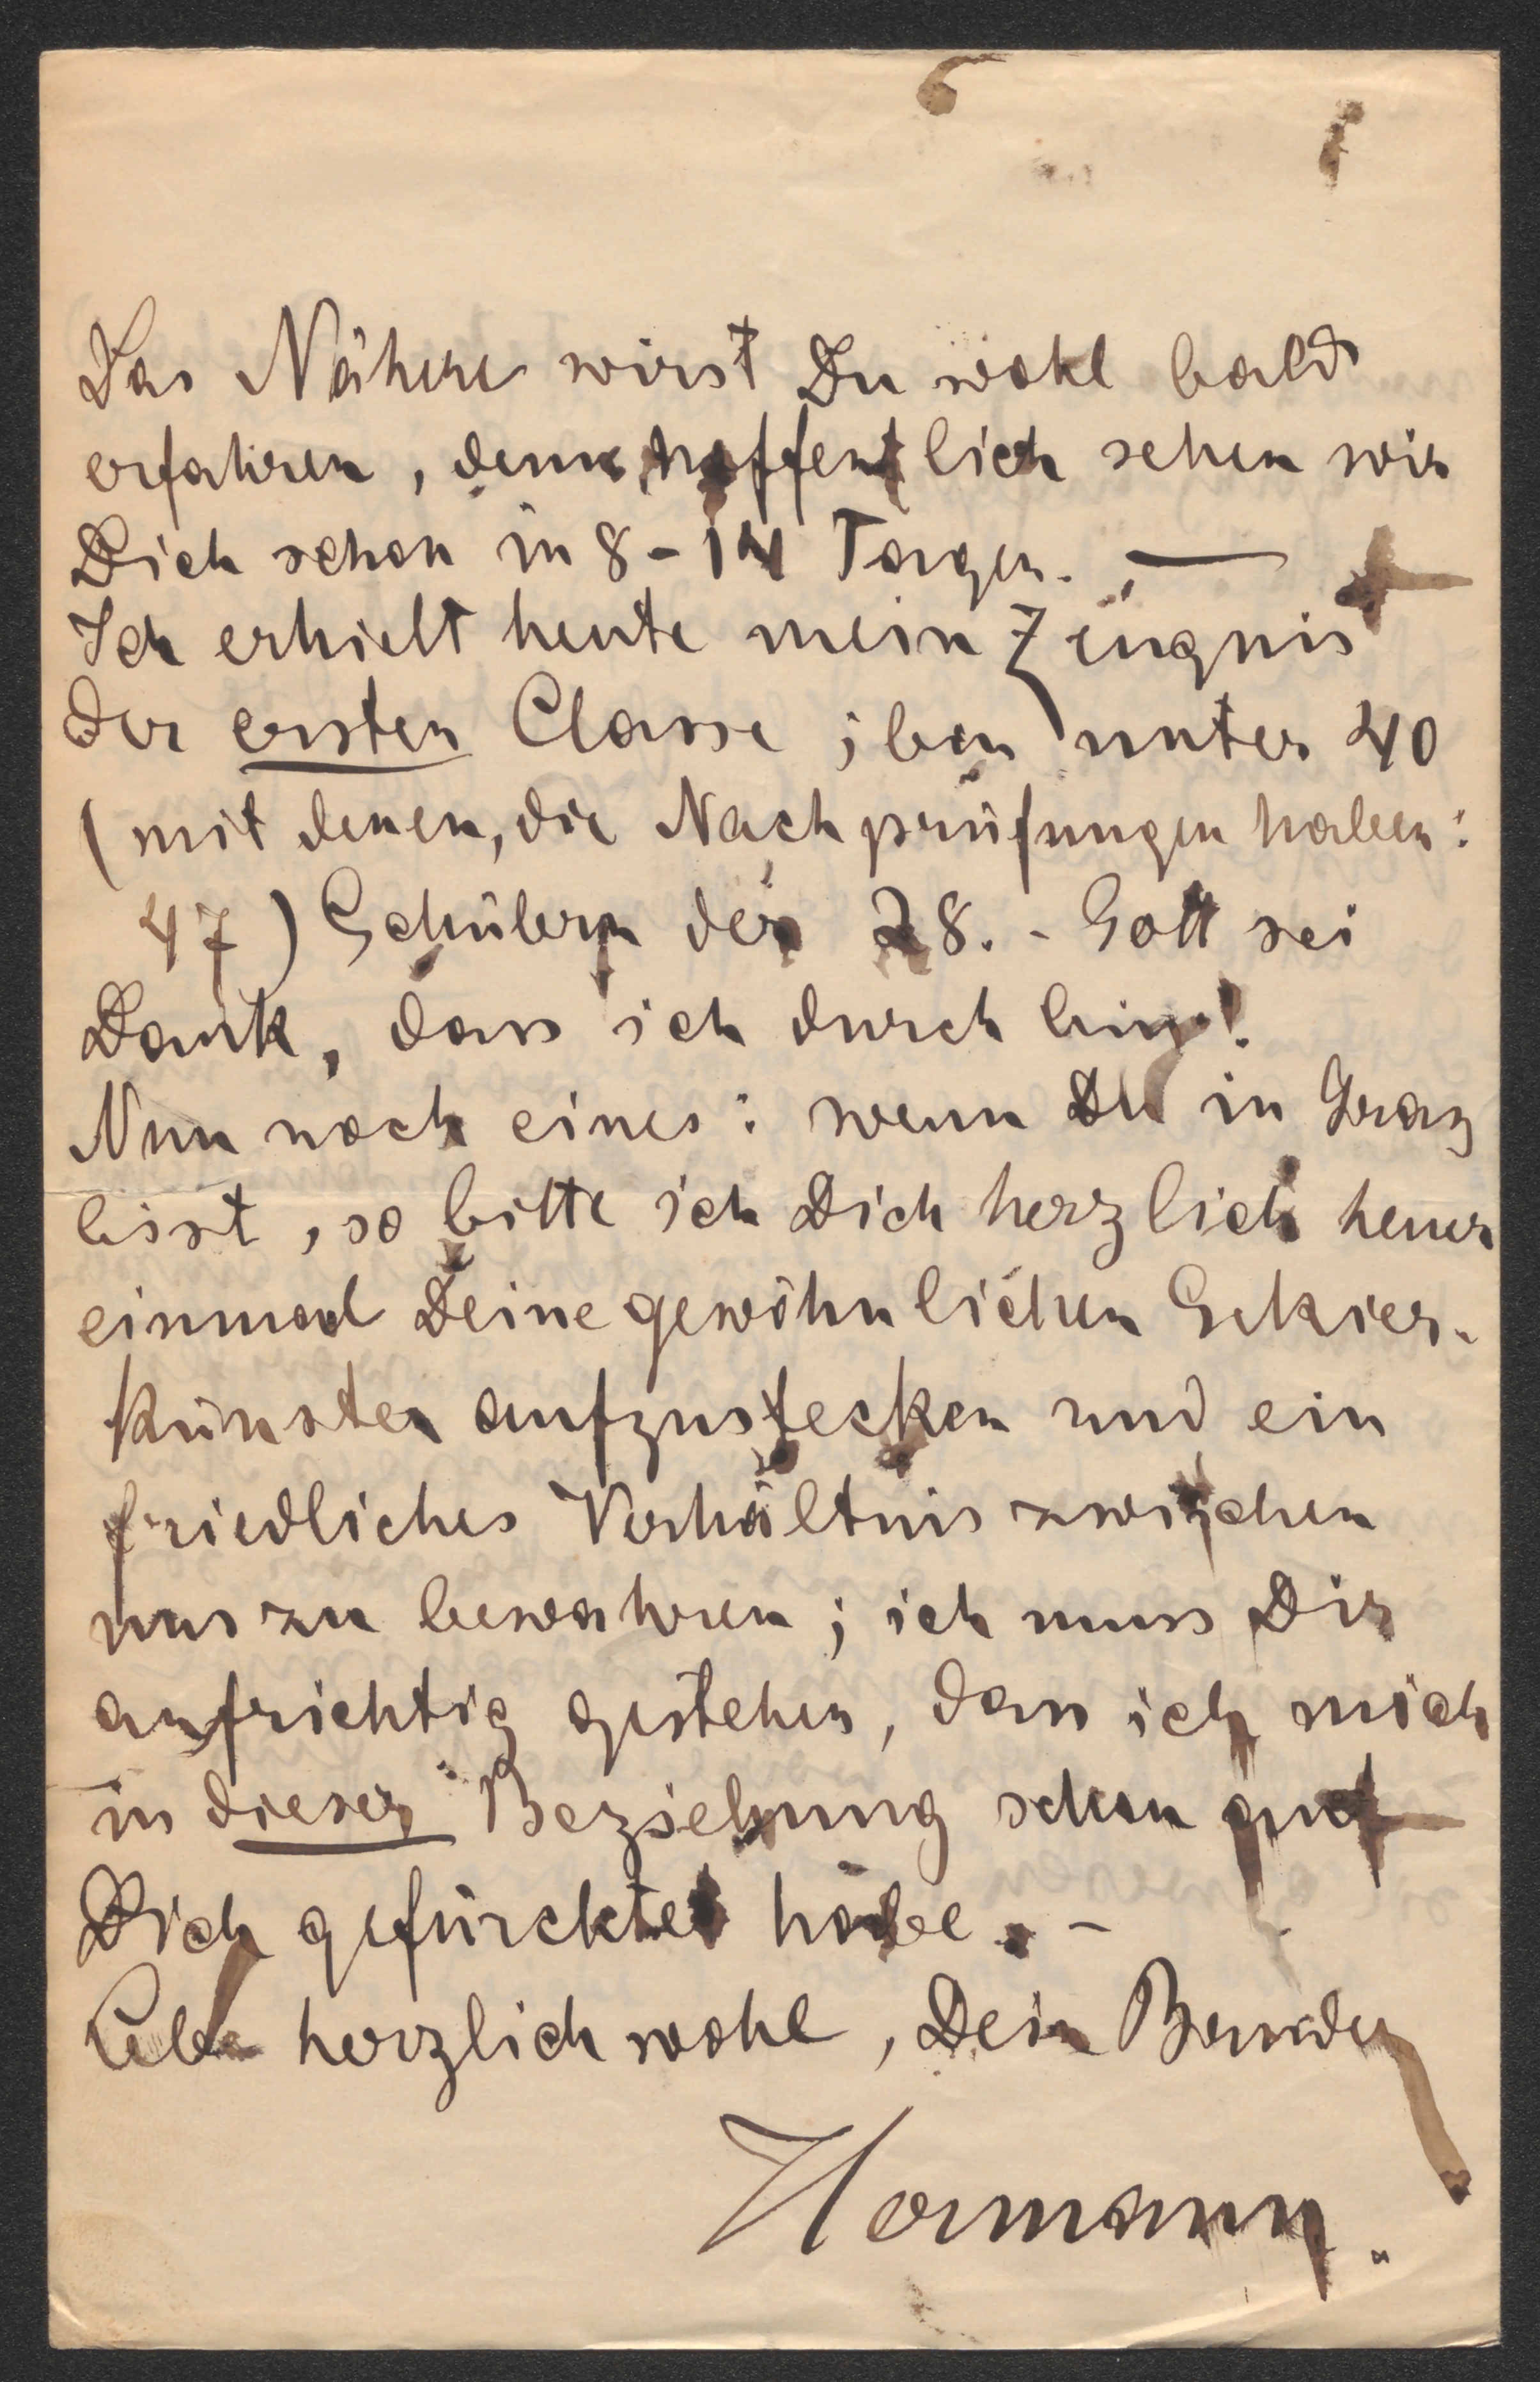 Das Nähere wirst Du wohl bald
erfahren, denn hoffentlich sehen wir
Dich schon in 8-14 Tagen. —
Ich erhielt heute mein Zeugnis
der ersten Classe; bin unter 40
(mit denen, die Nachprüfungen haben:
47) Schülern der 28. - Gott sei
Dank, dass ich durch bin!
Nun noch eines: wenn Du in Graz
bist, so bitte ich Dich herzlich heuer
einmal Deine gewöhnlichen
künsten aufzustecken und ein
friedliches Verhältnis zwischen
uns zu bewahren; ich muss Dir
aufrichtig gestehen, dass ich mich
in dieser Beziehung schon auf
Dich gefürchtet habe. -
Lebe herzlich wohl, Dein Bruder
Hermann.